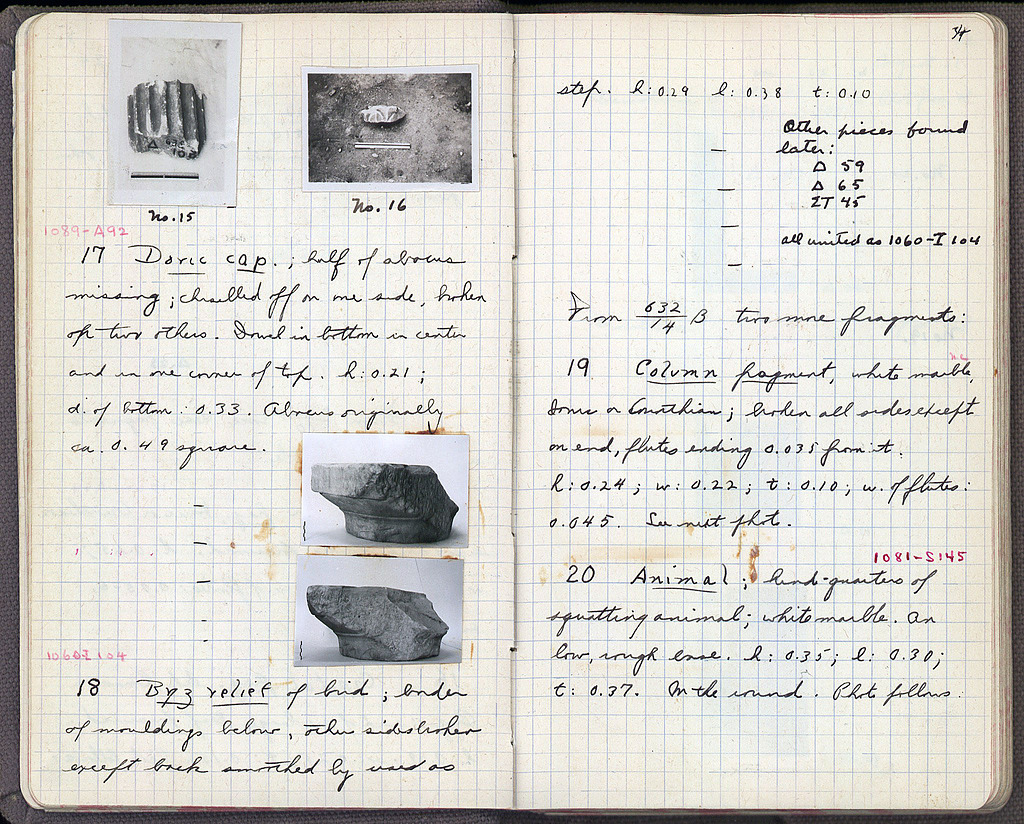 No. 15
No. 16
1089-A92
17 Doric cap.; half of abacus
missing; chiselled off on one side, broken
off two others. Dowel in bottom in center
and in one corner of top. h: 0.21;
d. of bottom: 0.33. Abacus originally
ca. 0.49 square.
1060-I 104
18 Byz relief of bird; border
of mouldings below, other sides broken
except back smoothed by used as
34
step. h: 0.29 l: 0.38 t: 0.10
Other pieces found
later:
Δ 59
Δ 65
ΣΤ 45
all united as 1060-I 104
From 632/14 B two more fragments:
N.C.
19 Column fragment, white marble,
Ionic or Corinthian; broken all sides except
on end, flutes ending 0.035 from it.
h: 0.24; w: 0.22; t: 0.10; w. of flutes:
0.045. See next photo.
1081-S145
20 Animal; hind-quarters of
squatting animal; white marble. On
low, rough base. h: 0.35; l: 0.30;
t: 0.37. In the round. Photo follows.